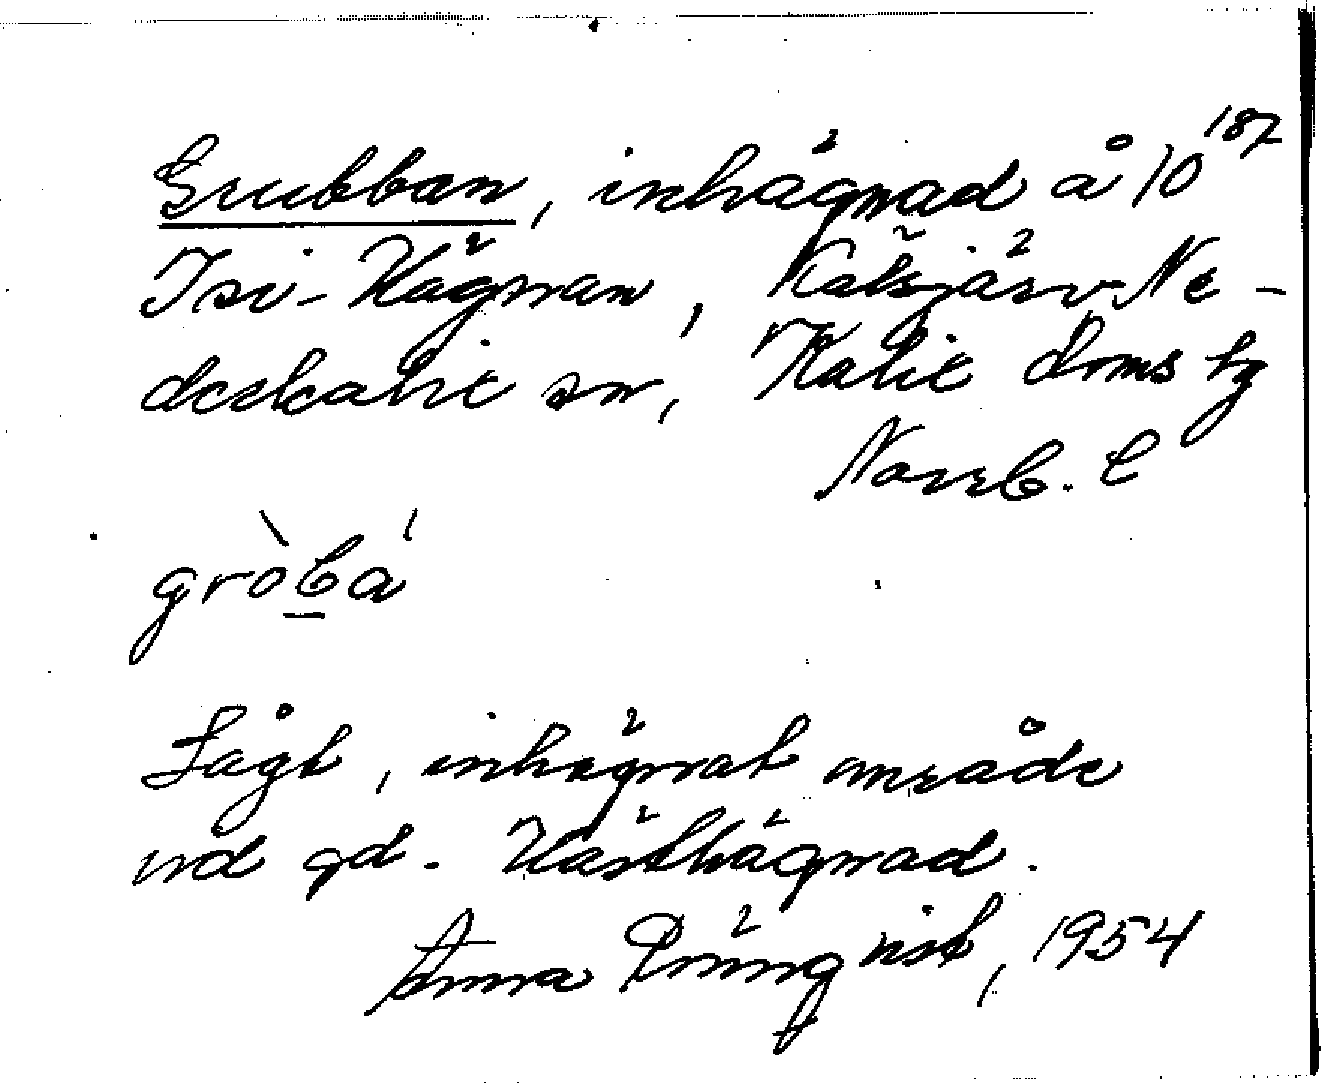 Grubban, inhägnad å 10 187
Isi-Hägnan, Kalsjärv Ne-
derkalix sn, Kalix doms tg
Norrb. l
gròbá
Lågt, inhägnat område
vid gd. Hästhägnad.
Anna Rönnqvist, 1954